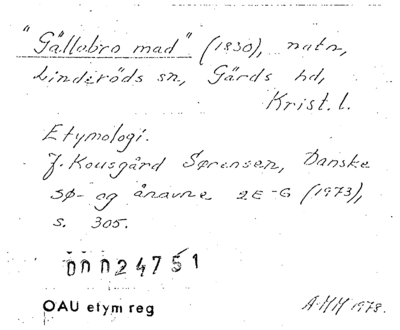 "Gällabro mad" (1830), natn,
Linderöds sn, Gärds hd,
Krist. l.
Etymologi.
J. Kousgård Sørensen, Danske
sø- og ånavne 2E-G (1973),
s. 305.
00024751
OAU etym reg
A-MH 1978.